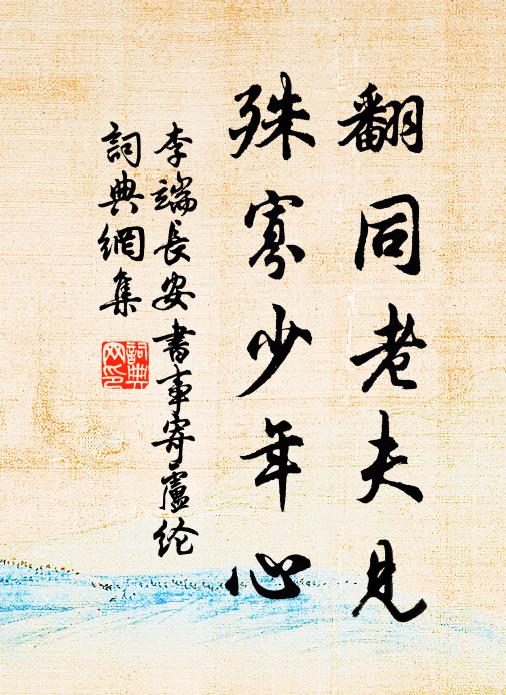 翻同老夫見
殊寡少年心
李端長安書事寄盧纶
詞典網集
詞典
网印